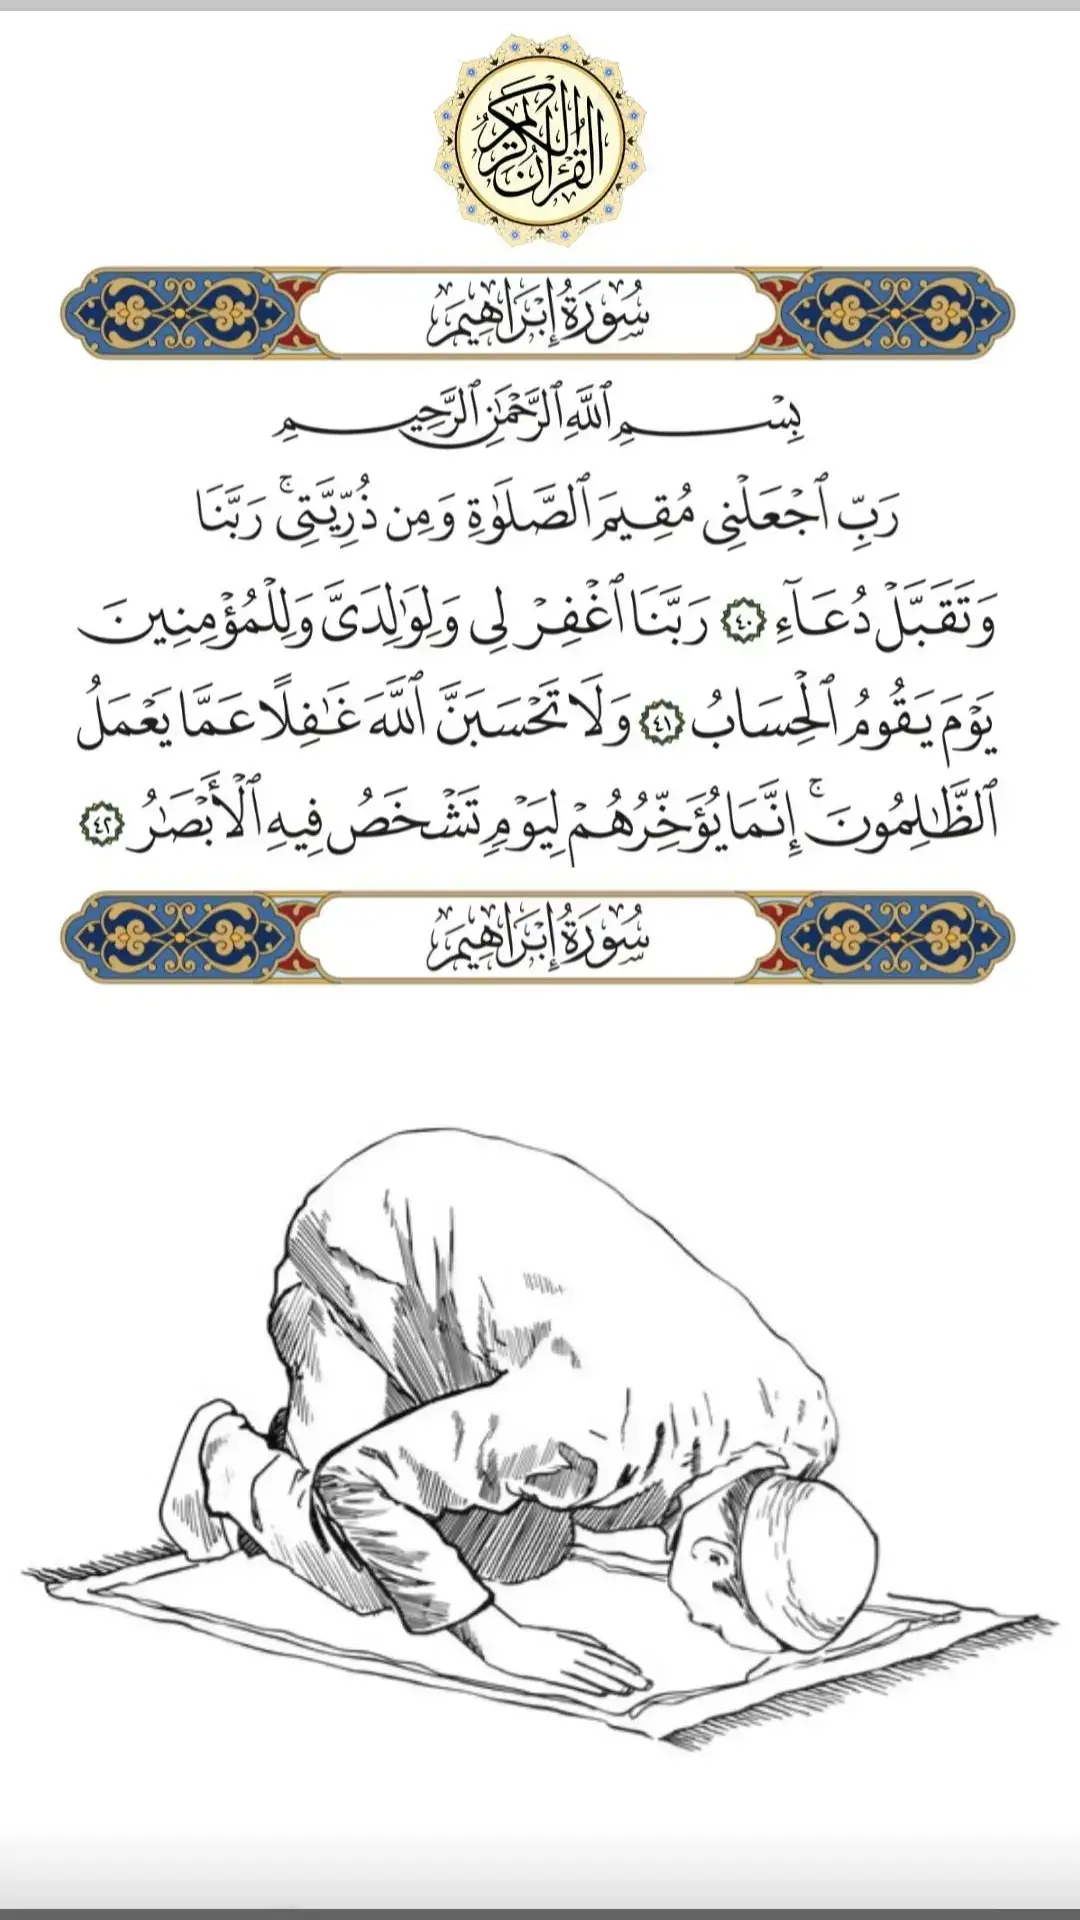 القرآن الكريم
سُورَةُ إِبْرَاهِيمَ
بِسْمِ ٱللَّهِ ٱلرَّحْمَٰنِ ٱلرَّحِيمِ
رَبِّ ٱجْعَلْنِى مُقِيمَ ٱلصَّلَوٰةِ وَمِن ذُرِّيَّتِى ۚ رَبَّنَا
وَتَقَبَّلْ دُعَآءِ ٤٠ رَبَّنَا ٱغْفِرْ لِى وَلِوَٰلِدَىَّ وَلِلْمُؤْمِنِينَ
يَوْمَ يَقُومُ ٱلْحِسَابُ ٤١ وَلَا تَحْسَبَنَّ ٱللَّهَ غَٰفِلًا عَمَّا يَعْمَلُ
ٱلظَّٰلِمُونَ ۚ إِنَّمَا يُؤَخِّرُهُمْ لِيَوْمٍ تَشْخَصُ فِيهِ ٱلْأَبْصَٰرُ ٤٢
سُورَةُ إِبْرَاهِيمَ